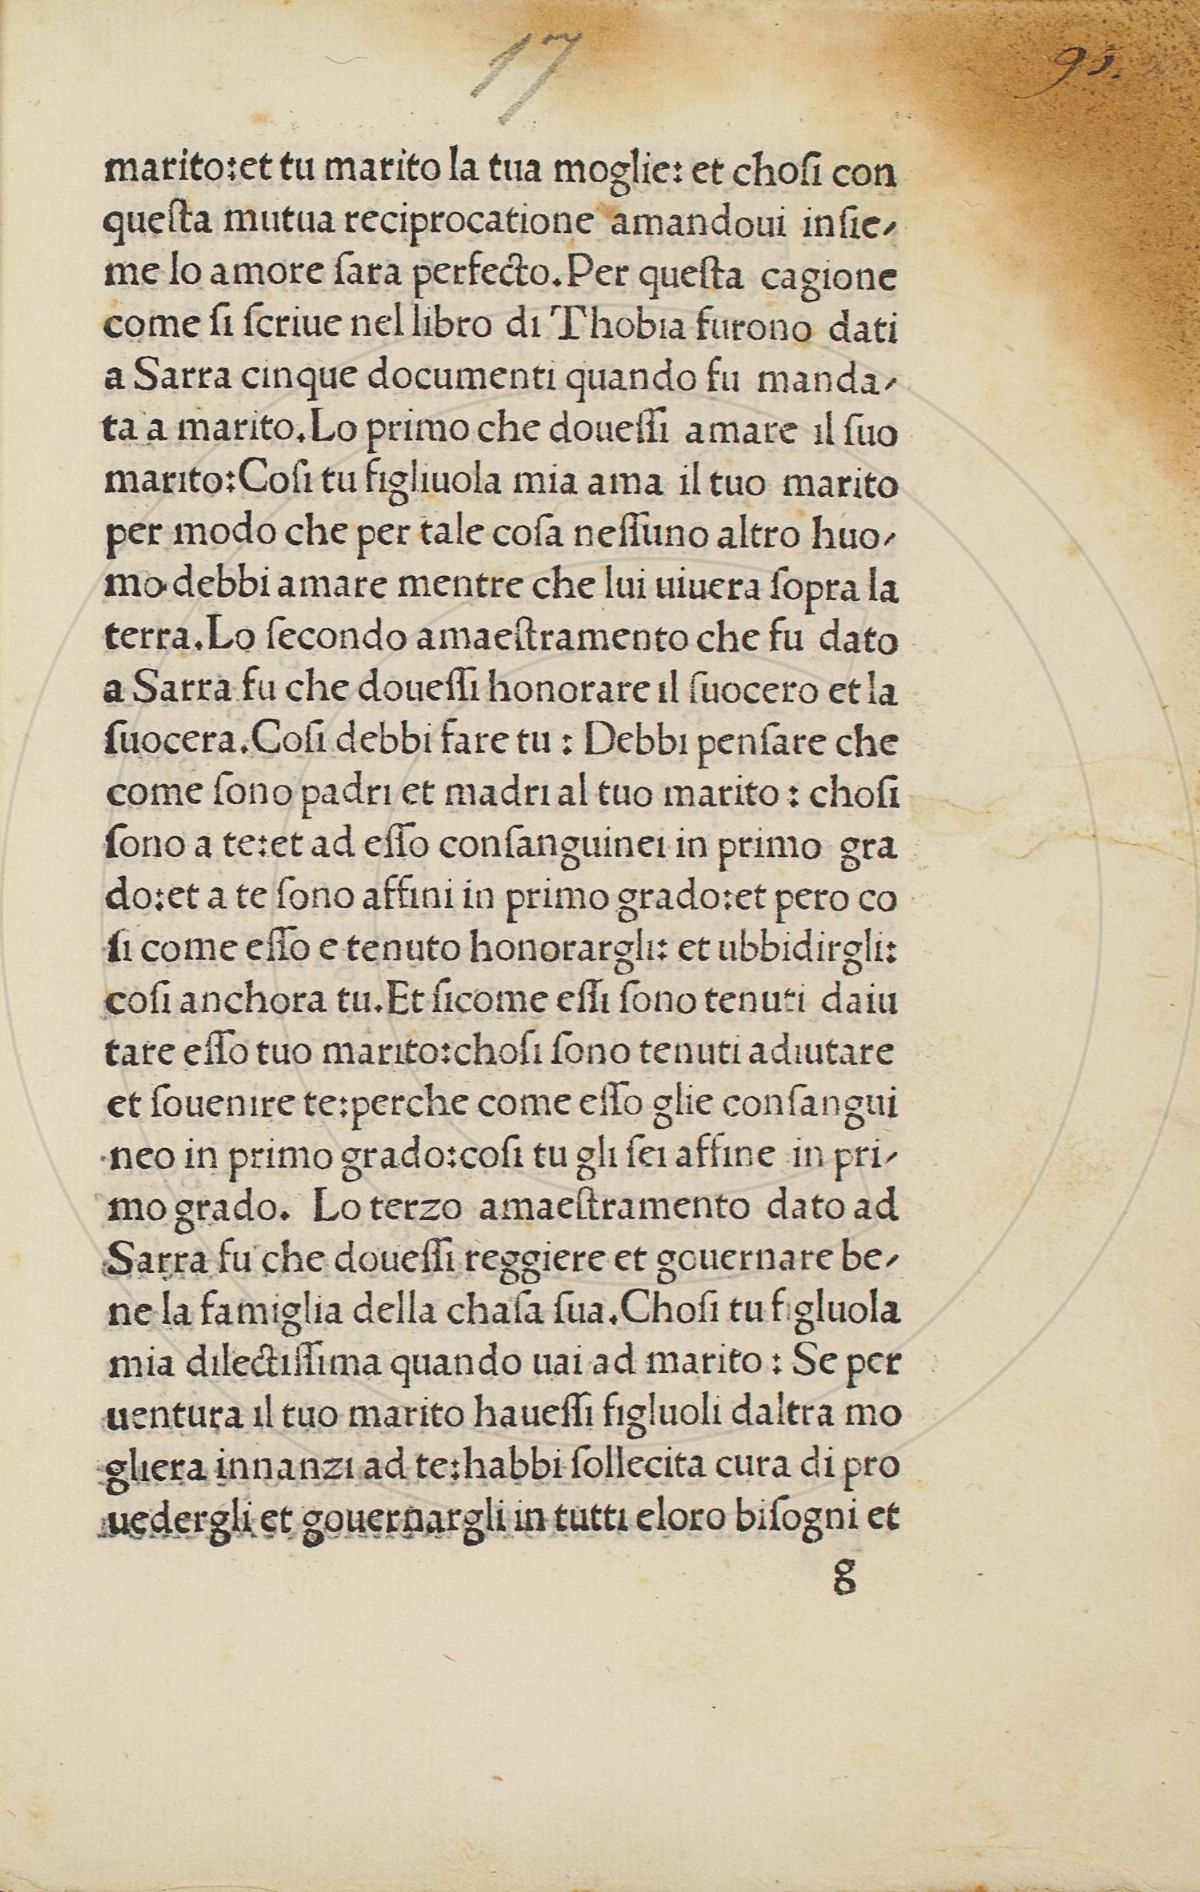 17
95.
marito:et tu marito la tua moglie: et choſi con
queſta mutua reciprocatione amandoui inſie⸗
me lo amore ſara perfecto.Per queſta cagione
come ſi ſcriue nel libro di Thobia furono dati
a Sarra cinque documenti quando fu manda⸗
ta a marito.Lo primo che doueſſi amare il ſuo
marito:Coſi tu figliuola mia ama il tuo marito
per modo che per tale coſa neſſuno altro huo⸗
mo debbi amare mentre che lui uiuera ſopra la
terra.Lo ſecondo amaeſtramento che fu dato
a Sarra fu che doueſſi honorare il ſuocero et la
ſuocera.Coſi debbi fare tu : Debbi penſare che
come ſono padri et madri al tuo marito : choſi
ſono a te:et ad eſſo conſanguinei in primo gra
do:et a te ſono affini in primo grado:et pero co
ſi come eſſo e tenuto honorargli: et ubbidirgli:
coſi anchora tu.Et ſicome eſſi ſono tenuti daiu
tare eſſo tuo marito:choſi ſono tenuti adiutare
et ſouenire te:perche come eſſo glie conſangui
neo in primo grado:coſi tu gli ſei affine in pri⸗
mo grado. Lo terzo amaeſtramento dato ad
Sarra fu che doueſſi reggiere et gouernare be⸗
ne la famiglia della chaſa ſua.Choſi tu figluola
mia dilectiſſima quando uai ad marito : Se per
uentura il tuo marito haueſſi figluoli daltra mo
gliera innanzi ad te:habbi ſollecita cura di pro
uedergli et gouernargli in tutti eloro biſogni et
g